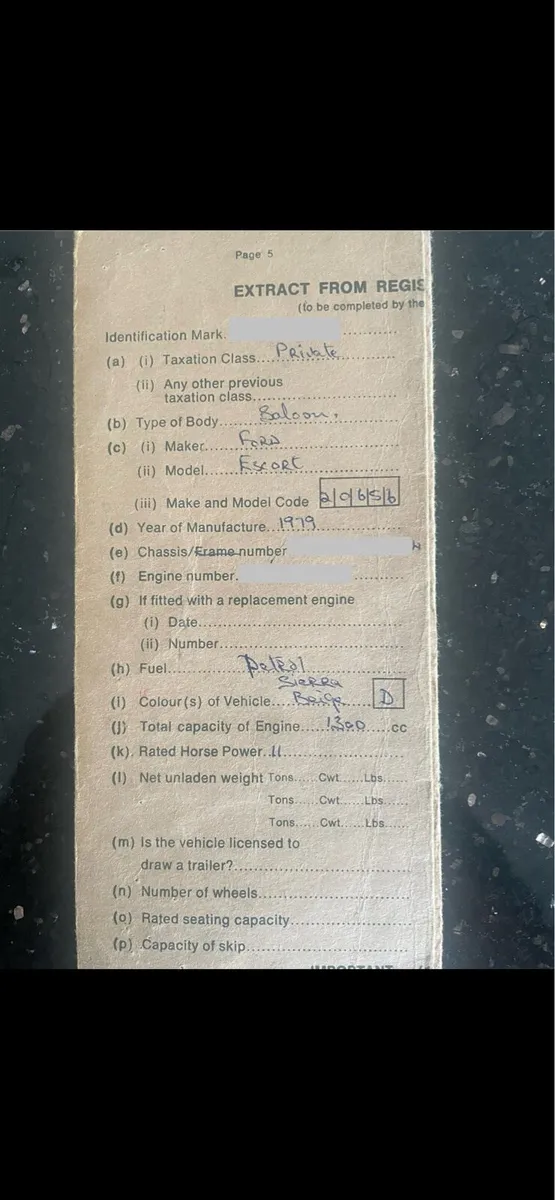 Page 5
EXTRACT FROM REGIS
(to be completed by the
Identification Mark.
(a) (i) Taxation Class....Private
(ii) Any other previous
taxation class.....
(b) Type of Body.....Saloon.
(c) (i) Maker.....FORD
(ii) Model.....Escort
(iii) Make and Model Code 2|0|6|5|6
(d) Year of Manufacture..1979
(e) Chassis/Frame number
(f) Engine number.
(g) If fitted with a replacement engine
(i) Date.....
(ii) Number.....
(h) Fuel.....Petrol
Sierra
(i) Colour(s) of Vehicle....Beige.... D
(j) Total capacity of Engine....1300....cc
(k). Rated Horse Power. 11
(l) Net unladen weight Tons.....Cwt.....Lbs.....
Tons.....Cwt.....Lbs.....
Tons.....Cwt.....Lbs.....
(m) Is the vehicle licensed to
draw a trailer?.....
(n) Number of wheels.....
(o) Rated seating capacity.....
(p) Capacity of skip.....
IMPORTANT